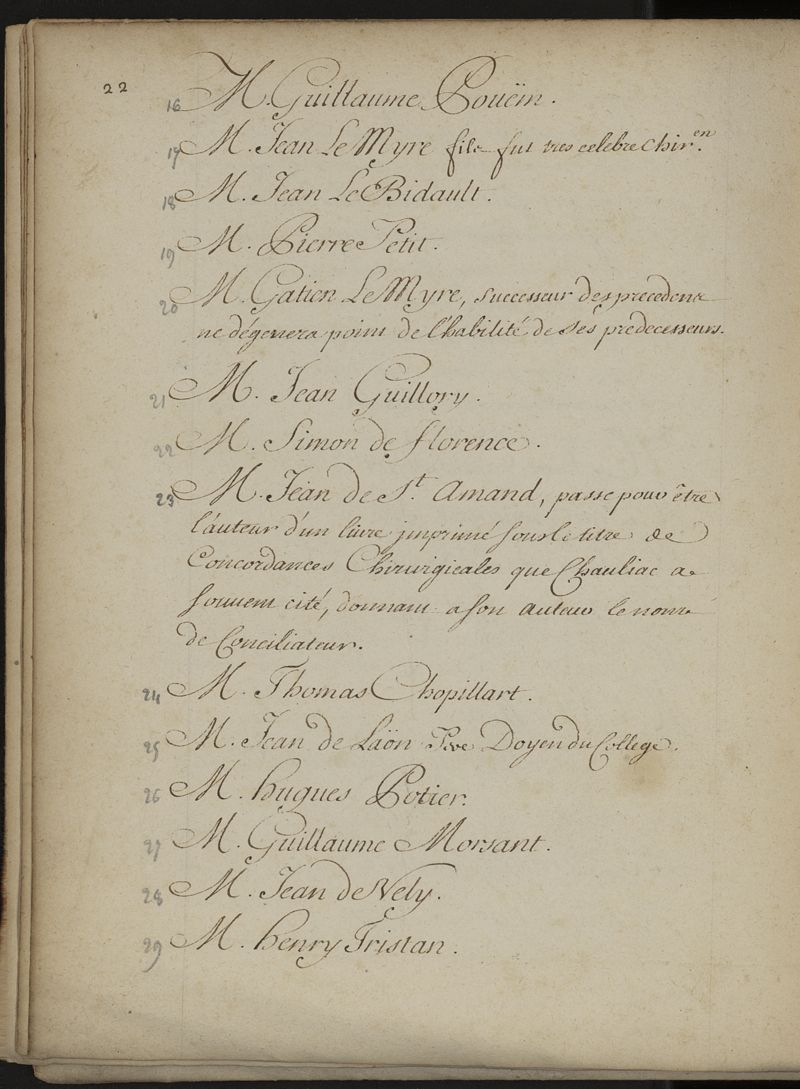 22
16 M. Guillaume Pouëin.
17 M. Jean Le Myre fils fut tres celebre Chir.en
18 M. Jean Le Bidault.
19 M. Pierre Petit.
20 M. Gatien Le Myre, successeur des precedens
ne dégenera point de l'habilité de ses prédecesseurs.
21 M. Jean Guillory.
22 M. Simon de florence.
23 M. Jean de St. Amand, passe pour être
l'auteur d'un livre jmprimé sous le titre de
Concordances Chirurgicales que Chauliac a
souvent cité, donnant a son auteur le nom
de Conciliateur.
24 M. Thomas Chopillart.
25 M. Jean de Laön Doyen du College.
26 M. hugues Potier.
27 M. Guillaume Morsant.
28 M. Jean de Nely.
29 M. henry Tristan.